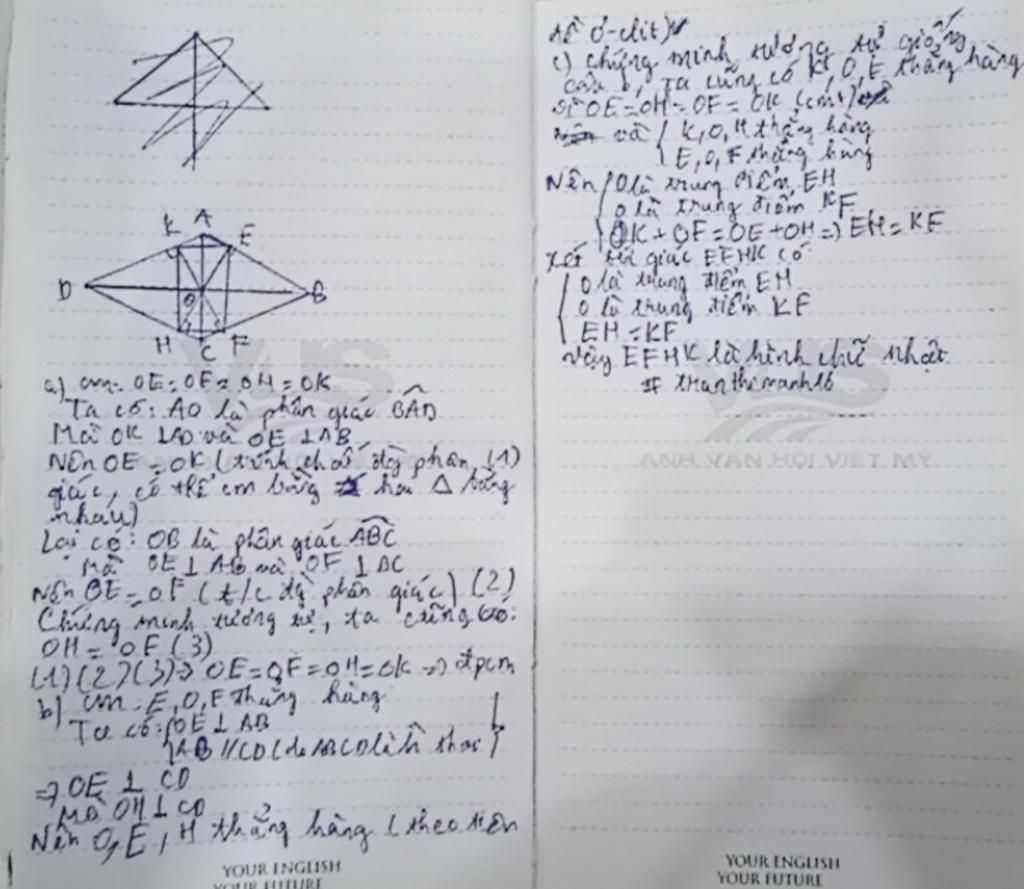 K A E
D O B
H C F
a) cm: OE = OF = OH = OK
Ta có: AO là phân giác BAD
Mà OK ⊥ AD và OE ⊥ AB
Nên OE = OK (tính chất đg phân (1)
giác, có thể cm bằng hai △ bằng
nhau)
Lại có: OB là phân giác ABC
Mà OE ⊥ AB và OF ⊥ BC
Nên OE = OF (t/c đg phân giác) (2)
Chứng minh tương tự, ta cũng có:
OH = OF (3)
(1)(2)(3) => OE = OF = OH = OK => đpcm
b) cm: E, O, F thẳng hàng
Ta có: OE ⊥ AB
AB // CD (do ABCD là h thoi)
=> OE ⊥ CD
Mà OH ⊥ CD
Nên O, E, H thẳng hàng (theo tiên
đề Ơ-clit)
c) Chứng minh tương tự giống
câu b, ta cũng có K, O, F thẳng hàng
Vì OE = OH = OF = OK (cmt)
và K, O, H thẳng hàng
E, O, F thẳng hàng
Nên O là trung điểm EH
O là trung điểm KF
OK + OF = OE + OH => EH = KF
Xét tứ giác EFHK có
O là trung điểm EH
O là trung điểm KF
EH = KF
Vậy EFHK là hình chữ nhật
# tranthemanh16
VUS
ANH VĂN HỘI VIỆT MỸ
YOUR ENGLISH
YOUR FUTURE
YOUR ENGLISH
YOUR FUTURE